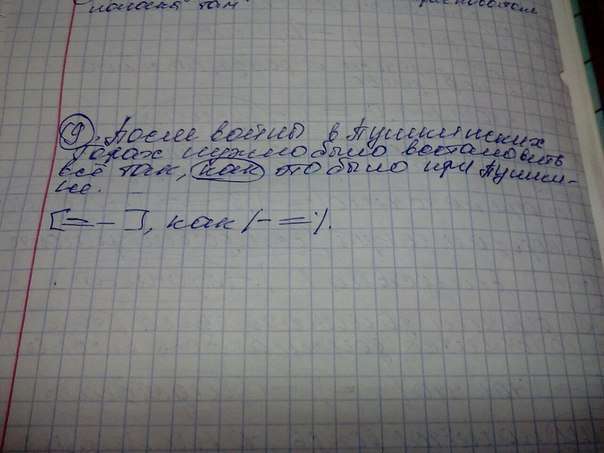 полоски там
9. После войны в Пушкинских
Горах нужно было востановить
всё так, как это было при Пушки-
не.
[= -], как (- =).